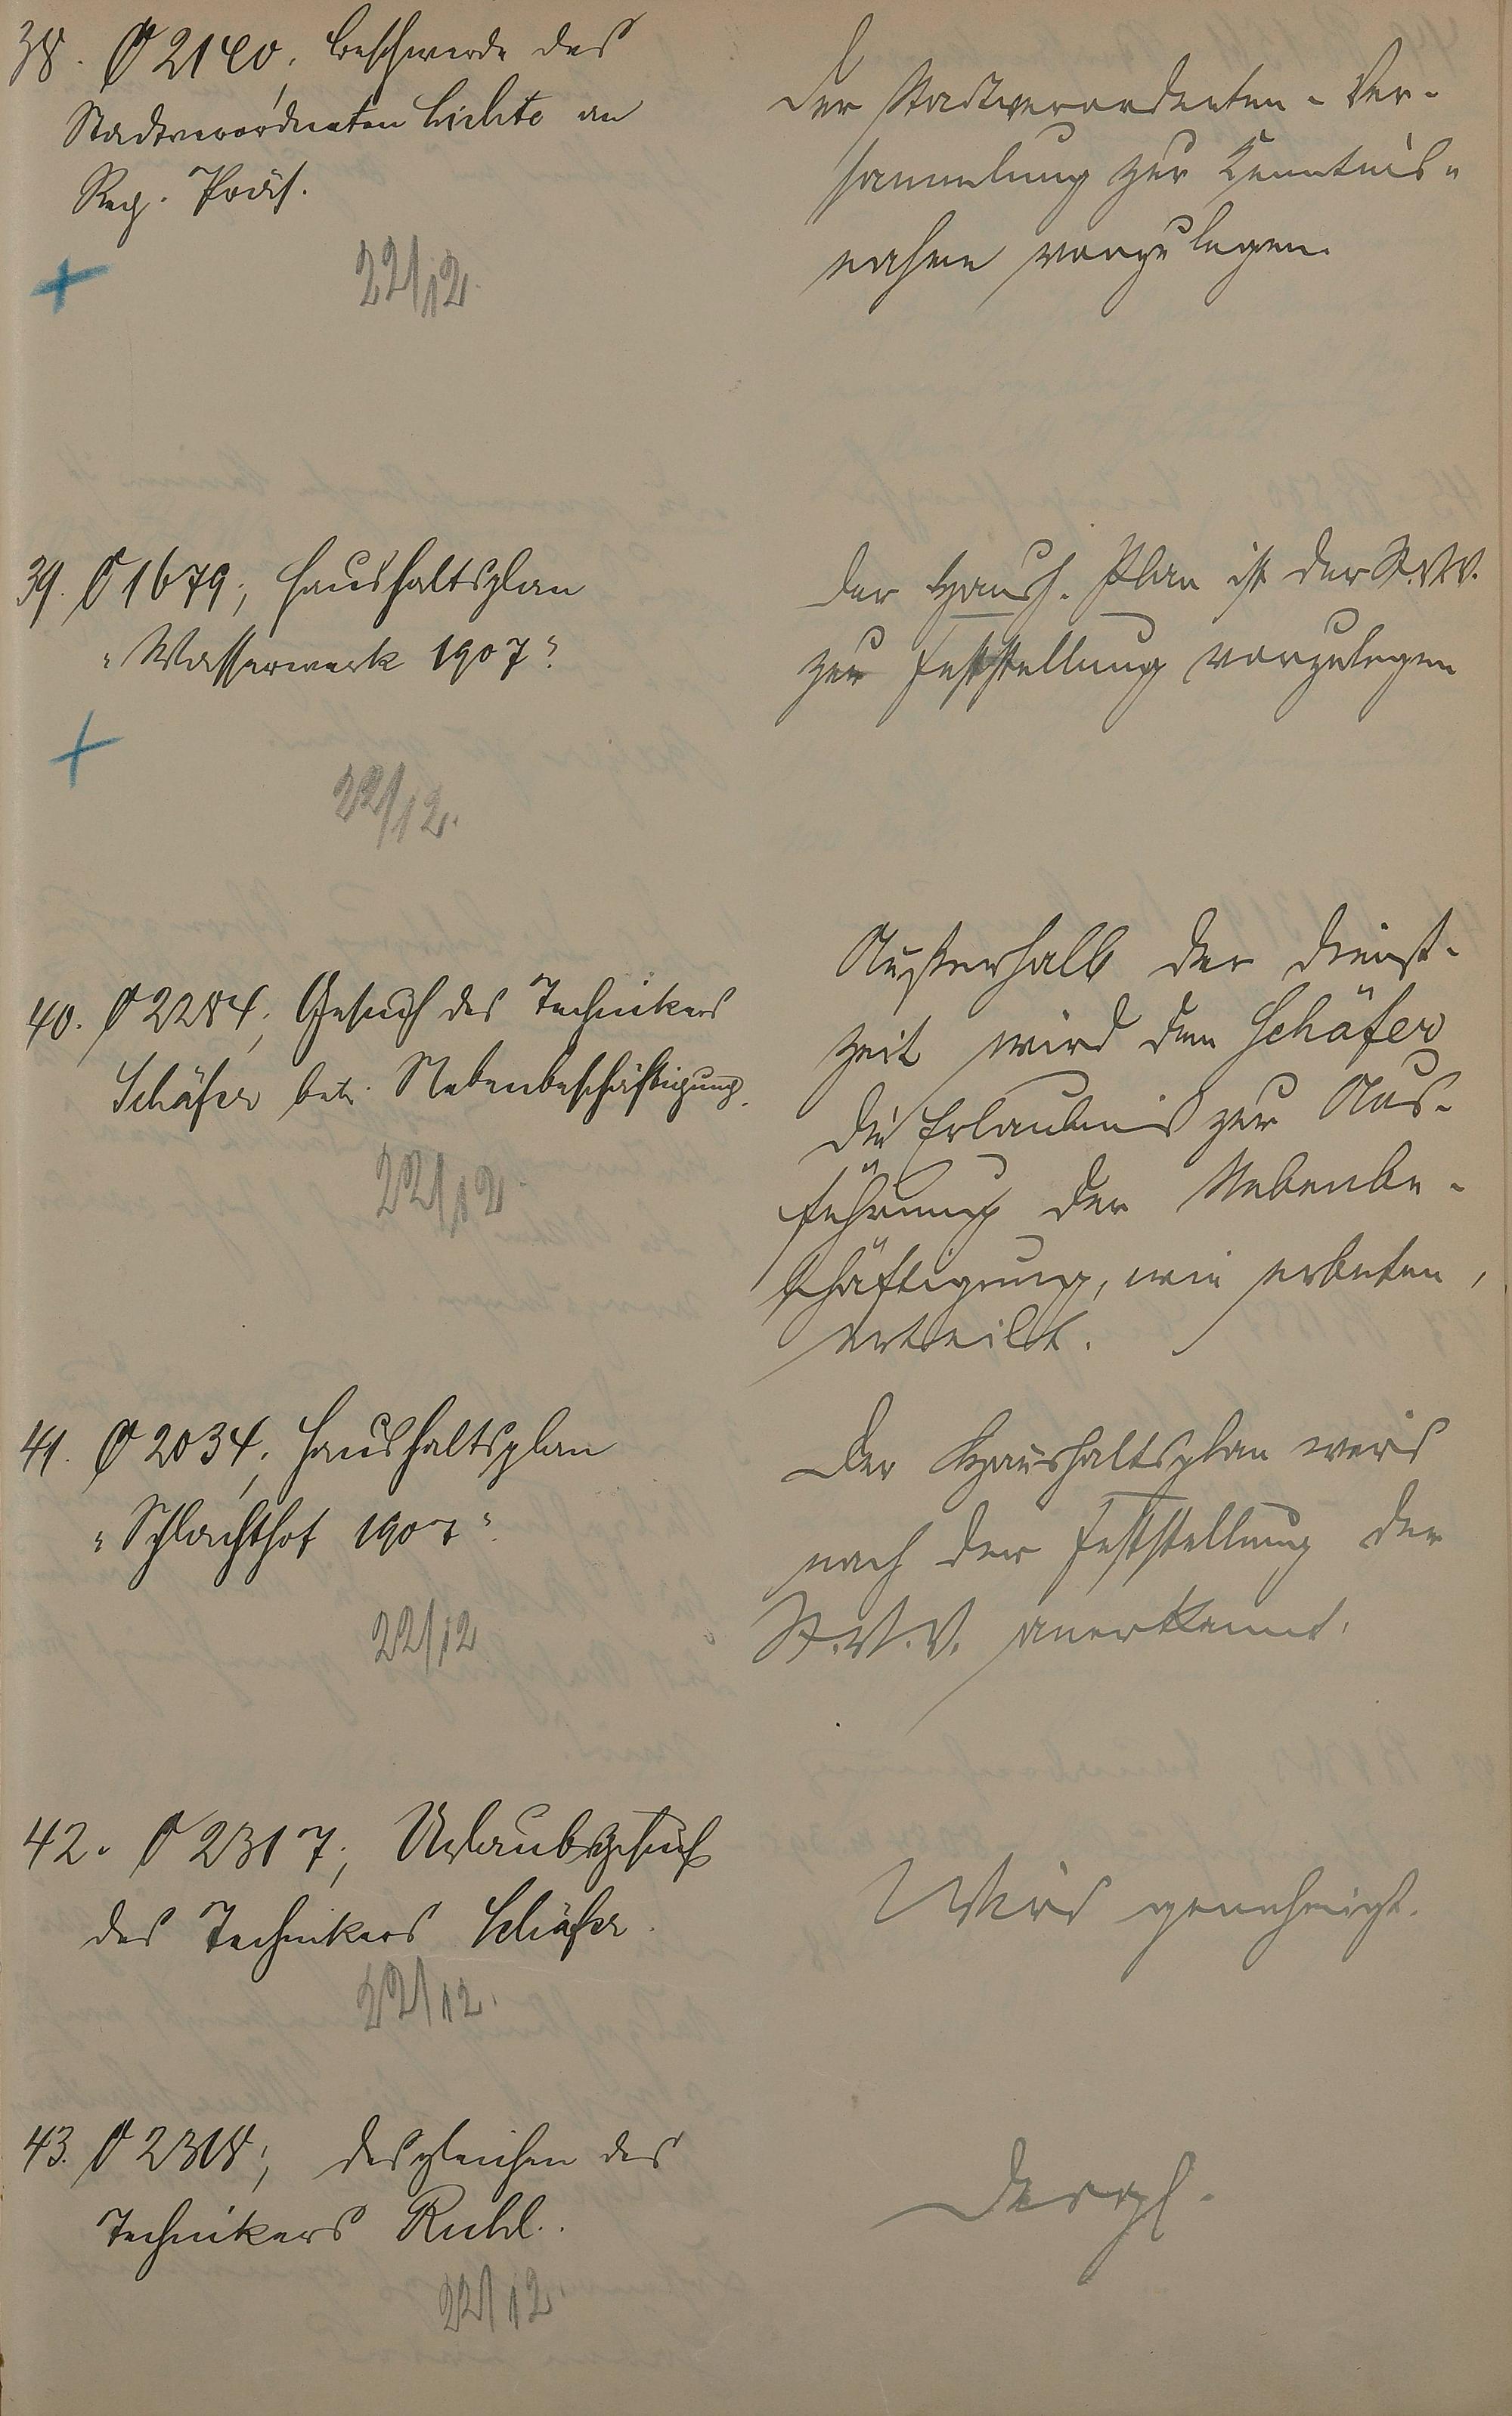 38. O 2140, Beschwerde des
Stadtverordneten Lichte an
Reg. Präs.
22/12.
Der Stadtverordneten-Ver-
sammlung zur Kenntnis-
nahme vorzulegen.
39. O 1679, Haushaltsplan
"Wasserwerk 1907".
22/12.
Der Haush. Plan ist der St.V.V.
zur Feststellung vorzulegen
40. O 2284, Gesuch des Technikers
Schäfer betr. Nebenbeschäftigung.
22/12.
Ausserhalb der Dienst-
zeit wird dem Schäfer
die Erlaubnis zur Aus-
führung der Nebenbe-
schäftigung, wie erbeten,
erteilt.
41. O 2034, Haushaltsplan
"Schlachthof 1907".
22/12
Der Haushaltsplan wird
nach der Feststellung der
St.V.V. anerkannt.
42. O 2317, Urlaubsgesuch
des Technikers Schäfer.
22/12.
Wird genehmigt.
43. O 2318, desgleichen des
Technikers Ruhl.
22/12.
Desgl.